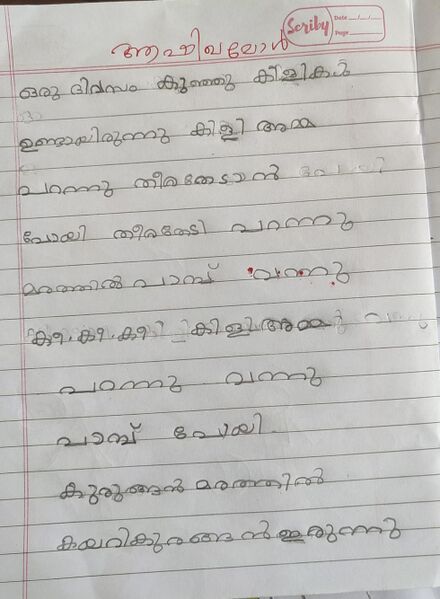 Scriby
Date __/__/__
Page
ആഹിഖലോൻ
ഒരു ദിവസം കുഞ്ഞു കിളികൾ
ഉണ്ടായിരുന്നു കിളി അമ്മ
പറന്നു തീരതേടാൻ
പോയി തീരതേടി പറന്നു
മരത്തിൽ പാമ്പ് വന്നു
കീ, കീ, കീ കിളി അമ്മ
പറന്നു വന്നു
പാമ്പ് പോയി.
കുരുങ്ങൻ മരത്തിൽ
കയറി കുരങ്ങൻ ഇരുന്നു